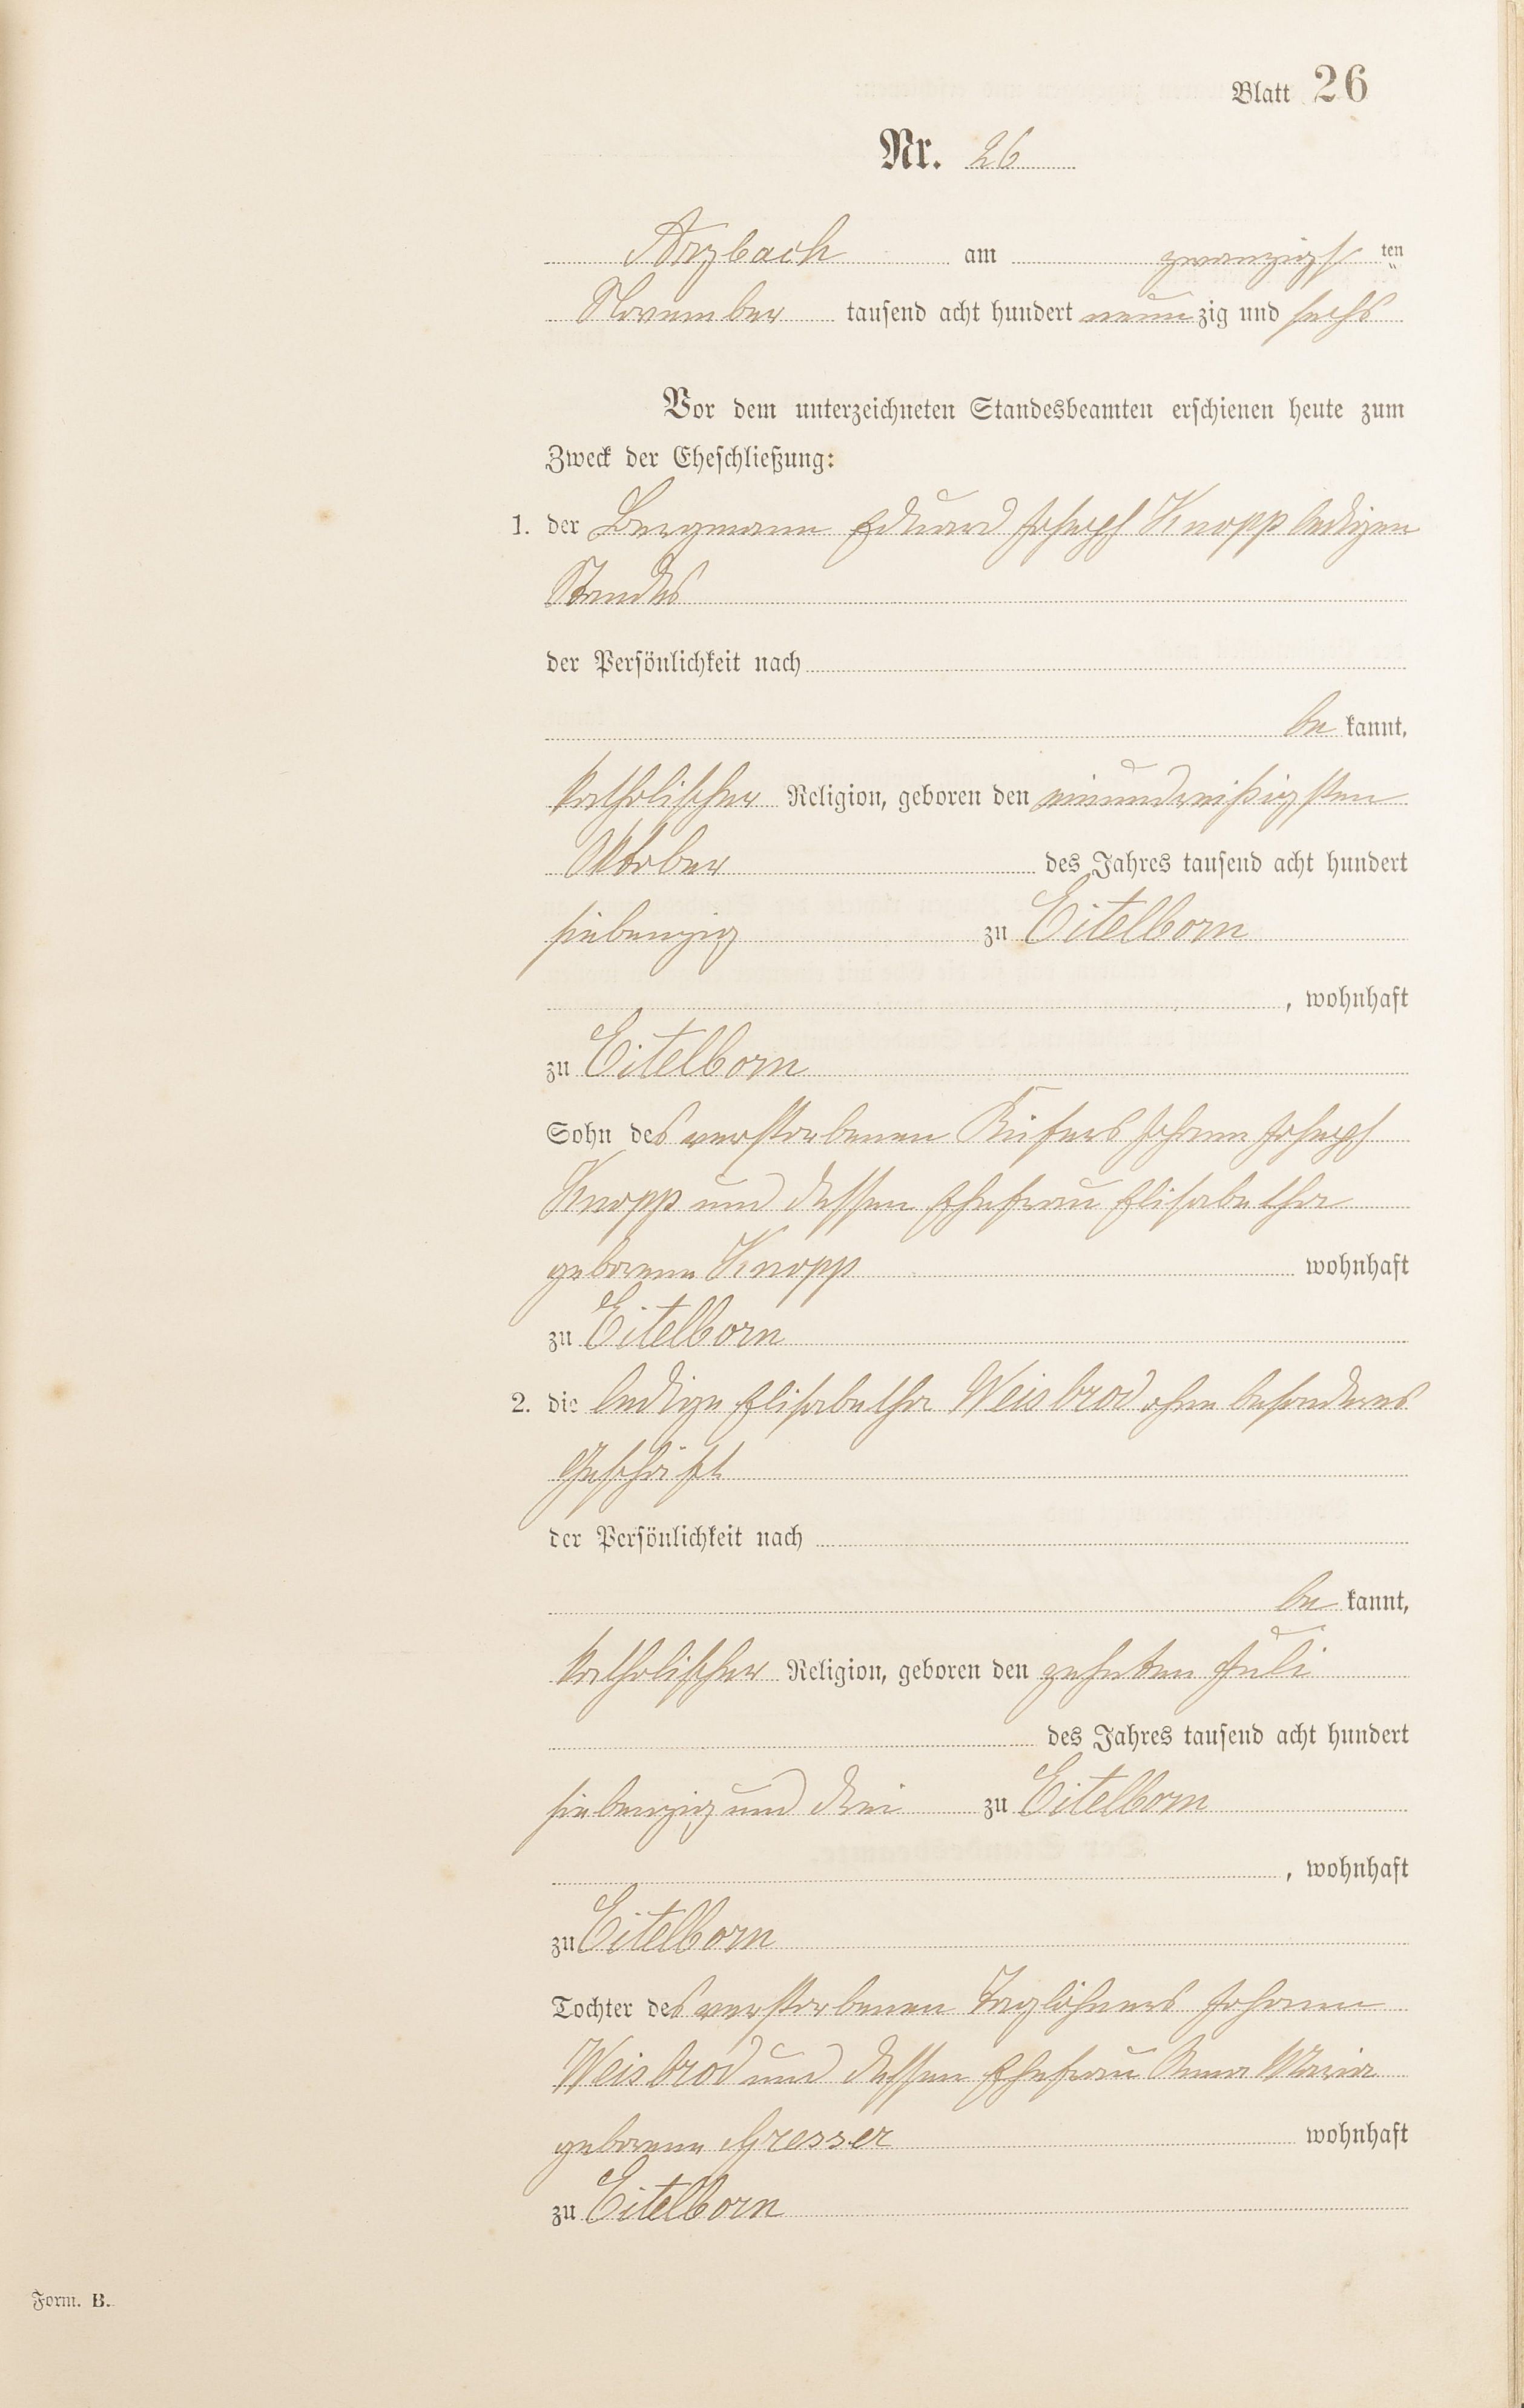 Blatt 26
Nr. 26
Arzbach am zwanzigsten
November tausend acht hundert neunzig und sechs
Vor dem unterzeichneten Standesbeamten erschienen heute zum
Zweck der Eheschließung:
1. der Bergmann Eduard Joseph Knopp ledigen
Standes
der Persönlichkeit nach
be kannt,
katholischer Religion, geboren den einunddreißigsten
Oktober des Jahres tausend acht hundert
siebenzig zu Eitelborn
, wohnhaft
zu Eitelborn
Sohn des verstorbenen Küfers Johann Joseph
Knopp und dessen Ehefrau Elisabetha
geborene Knopp wohnhaft
zu Eitelborn
2. die ledige Elisabetha Weisbrod ohne besonderes
Geschäft
der Persönlichkeit nach
be kannt,
katholischer Religion, geboren den zehnten Juli
des Jahres tausend acht hundert
siebenzig und drei zu Eitelborn
, wohnhaft
zu Eitelborn
Tochter des verstorbenen Taglöhners Johann
Weisbrod und dessen Ehefrau Anna Maria
geborene Gresser wohnhaft
zu Eitelborn
Form. B.